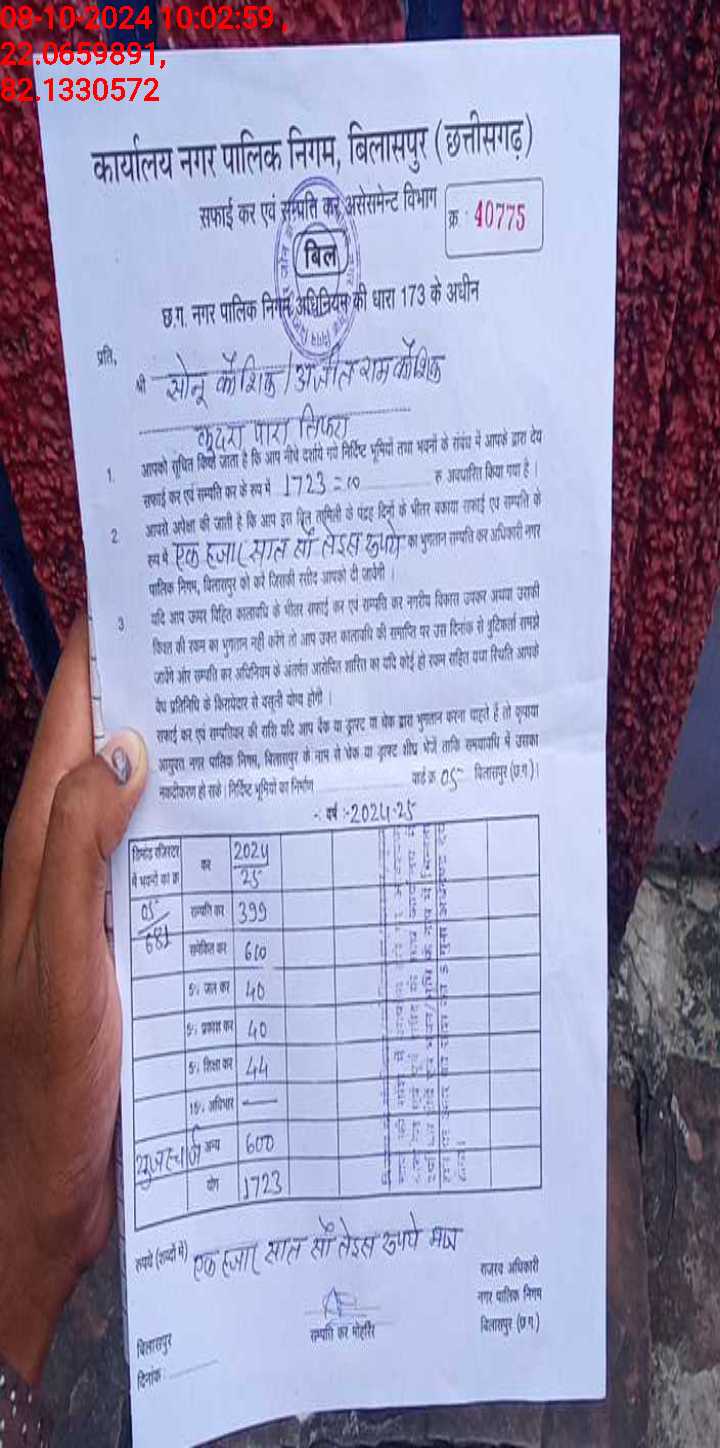 08-10-2024 10:02:59 ,
22.0659891,
82.1330572
कार्यालय नगर पालिक निगम, बिलासपुर (छत्तीसगढ़)
सफाई कर एवं सम्पति कर असेसमेन्ट विभाग
क्र. 40775
बिल
छ.ग. नगर पालिक निगम अधिनियम की धारा 173 के अधीन
प्रति,
श्री सोनू कौशिक / अजीत राम कौशिक
कुदरा पारा तिफरा
1. आपको सूचित किया जाता है कि आप नीचे दर्शाये गये निर्दिष्ट भूमियों तथा भवनों के संबंध में आपके द्वारा देय
सफाई कर एवं सम्पति कर के रूप में 1723=00 रु अवधारित किया गया है।
2 आपसे अपेक्षा की जाती है कि आप इस बिल तामिली के पंद्रह दिनों के भीतर बकाया सफाई एवं सम्पति के
रूप में एक हजार सात सौ तेइस रूपये का भुगतान सम्पति कर अधिकारी नगर
पालिक निगम, बिलासपुर को करे जिसकी रसीद आपको दी जावेगी।
3 यदि आप ऊपर विहित कालावधि के भीतर सफाई कर एवं सम्पति कर नगरीय विकास उपकर अथवा उसकी
किश्त की रकम का भुगतान नही करेंगे तो आप उक्त कालावधि की समाप्ति पर उस दिनांक से त्रुटिकर्ता समझे
जावेंगे और सम्पति कर अधिनियम के अंतर्गत आरोपित शास्ति का यदि कोई हो रकम सहित यथा स्थिति आपके
वैध प्रतिनिधि के किरायेदार से वसूली योग्य होगी।
सफाई कर एवं सम्पतिकर की राशि यदि आप बैंक या ड्राफ्ट या चेक द्वारा भुगतान करना चाहते हैं तो कृपया
आयुक्त नगर पालिक निगम, बिलासपुर के नाम से चेक या ड्राफ्ट शीघ्र भेजें ताकि समयावधि में उसका
नकदीकरण हो सके। निर्दिष्ट भूमियों का निर्माण वार्ड क्र 05 बिलासपुर (छ.ग.)।
वर्ष :- 2024-25
डिमांड रजिस्टर में भवनों का क्र कर 2024/25
05/681 सम्पति कर 399
समेकित कर 600
5% जल कर 40
5% प्रकाश कर 40
5% शिक्षा कर 44
15% अधिभार —
यूजरचार्ज अन्य 600
योग 1723
रूपये (शब्दों में) एक हजार सात सौ तेइस रूपये मात्र
राजस्व अधिकारी
नगर पालिक निगम
सम्पति कर मोहर्रिर
बिलासपुर (छ.ग.)
बिलासपुर
दिनांक :